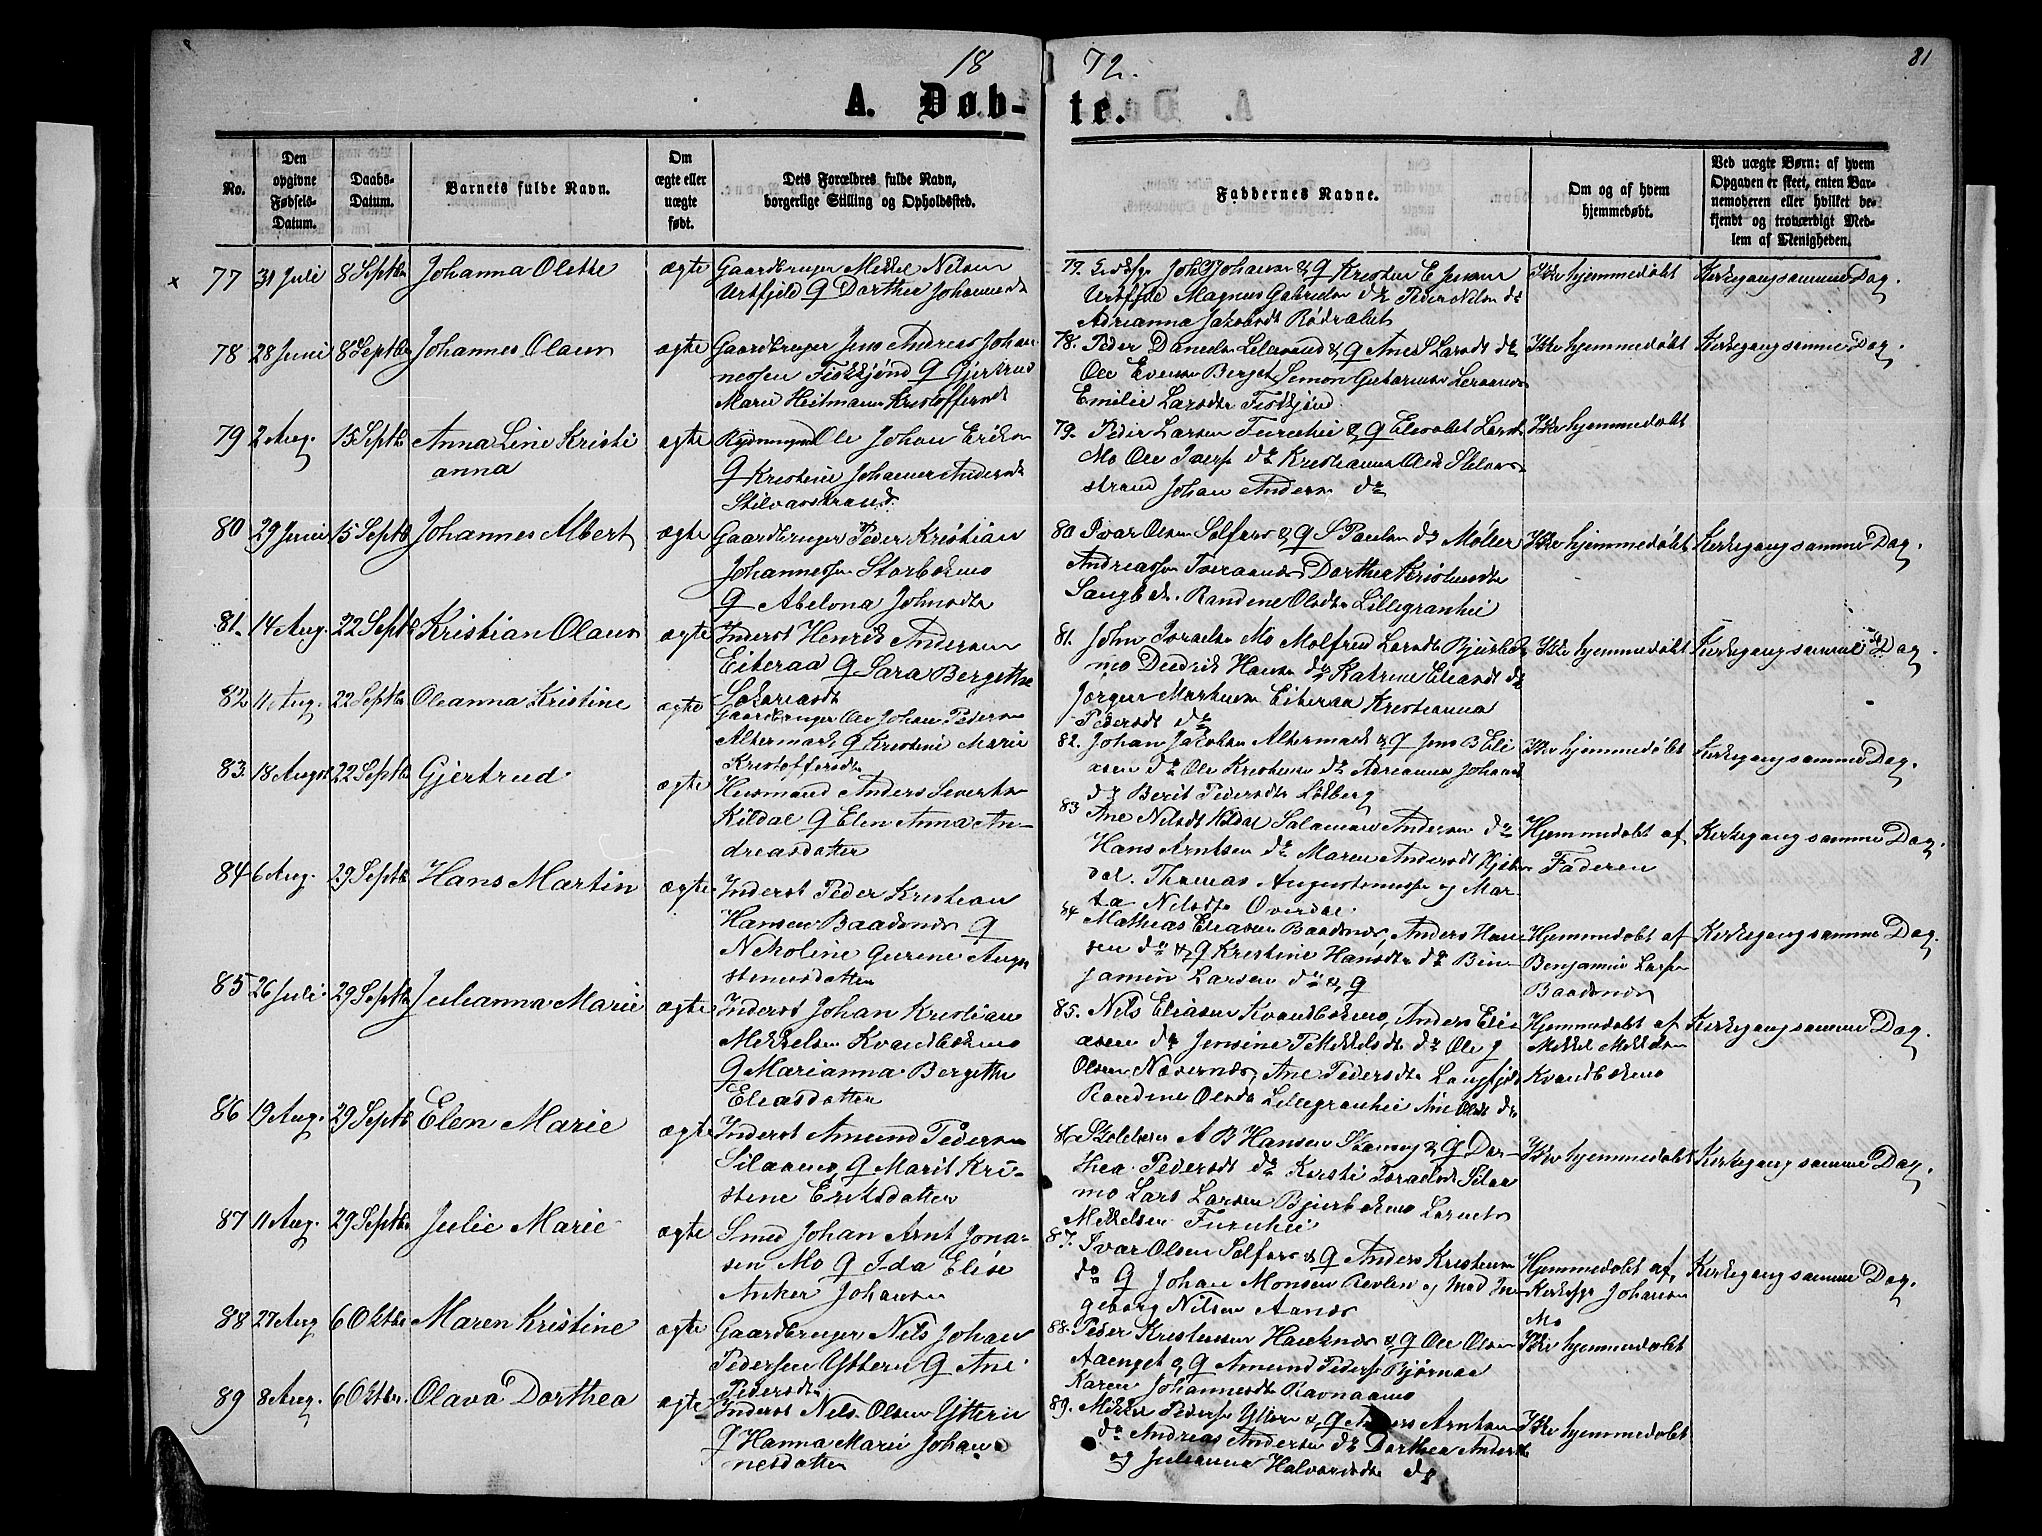 18 72.
81
A. Døb- te.
No.
Den opgivne Fødsels-Datum.
Daabs-Datum.
Barnets fulde Navn.
Om ægte eller uægte født.
Dets Forældres fulde Navn, borgerlige Stilling og Opholdssted.
Faddernes Navne.
Om og af hvem hjemmedøbt.
Ved uægte Børn: af hvem Opgaven er skeet, enten Barnemoderen eller hvilket bekjendt og troværdigt Medlem af Menigheden.
77 31 Juli 8 Septbr Johanna Olette ægte Gaardbruger Mikkel Nilsen
Urtfjeld Q Dorthea Johannesdt
Magnus Gabrielsen do Peder Nilsen do
Adrianna Jakobsdt Rødvalet
Ikke hjemmedøbt Kirkegang samme Dag.
78 28 Juni 8 Septbr Johannes Olaus ægte Gaardbruger Jens Andreas Johan
nessen Fiskkjønd Q Gjertrud
Marie Heitmann Kristoffersdt
78. Peder Danielsen & Q Ane Larsdt do
Ole Evensen Berget Simon
Emilie Larsdtr Fiskkjønd
Ikke hjemmedøbt Kirkegang samme Dag.
79 2 Aug. 15 Septbr Anna Line Kristi
anna
ægte Rydningsmd Ole Johan Eriksen
Q Kristine Johanna Andersdt
Stilvasstrand.
79. Peder Larsen Furuhei & Q Elisabet Larsdt
Mo Ole Iversen do Kristianna Olsdt Stilvas
strand Johan Andersen do
Ikke hjemmedøbt
80 29 Juni 15 Septbr Johannes Albert ægte Gaardbruger Peder Kristian
Johannessen Storbekmo
Q Abelona Johnsdtr
80 Ivar Olsen Selfors & Q S Paulsen do Møller
Andreassen Tveraanes Dorthea Kristensdtr
Langbek. Randine Olsdtr Lillegranhei
Ikke hjemmedøbt Kirkegang samme Dag.
81. 14 Aug. 22 Septbr Kristian Olaus ægte Inderst Henrik Andersen
Eiteraa Q Sara Bergithe
Sakariasdt
81. John Israelsen Mo Molfred Larsdtr Bjurbek
mo Diedrik Hansen do Katrine Eliasdt do
Jørgen Martinsen Eiteraa Kristianna
Pedersdt do
Ikke hjemmedøbt Kirkegang samme Dag.
82 11 Aug. 22 Septbr Oleanna Kristine ægte Gaardbruger Ole Johan Pedersen
Altermark Q Kristine Marie
Kristoffersdtr
82. Johan Jakobsen Altermark & Q Jens B Eli
asen do Ole Kristensen do Adrianna Johansdt
do Berit Pedersdtr Solberg
Ikke hjemmedøbt Kirkegang samme Dag.
83. 18 August 22 Septbr Gjertrud ægte Husmand Anders Sivertsen
Kildal Q Elen Anna An-
dreasdatter
83 Ane Nilsdt Kildal Salamon Andersen do
Hans Arntsen do Maren Andersdt
dal. Thomas Augustinussen og Mar-
ta Nilsdtr Overdal.
Hjemmedøbt af
Faderen
Kirkegang samme Dag.
84 6 Aug. 29 Septbr Hans Martin ægte Inderst Peder Kristian
Hansen Baadsnes Q
Nikoline Gurine Augu
stinusdatter
84 Mathias Eliasen Baadsnes, Anders Han
sen do & Q Kristine Hansdtr do Ben
jamin Larsen do & Q
Hjemmedøbt af
Benjamin Larsen
Baadsnes
Kirkegang samme Dag.
85 26 Juli. 29 Septbr Julianna Marie ægte Inderst Johan Kristian
Mikkelsen Kvandbekmo
Q Marianna Bergithe
Eliasdatter
85. Nils Eliasen Kvandbekmo, Anders Eli
asen do Jensine P Mikkelsdtr do Ole J
Olsen Nævernes, Ane Pedersdtr Langfjeld
Randine Olsdt Lillegranhei Ane Olsdt do
Hjemmedøbt af
Mikkel Mikkelsen
Kvandbekmo
Kirkegang samme Dag.
86 19 Aug. 29 Septbr Elen Marie ægte Inderst Amund Pedersen
Silaamo Q Marit Kri-
stine Eriksdatter
86. Skolelærer A B Hansen & Q Dor-
thea Pedersdt do Kirsti Israelsdt Silaa
mo Lars Larsen Bjurbekmo
Mikkelsen Furuhei
Ikke hjemmedøbt Kirkegang samme Dag.
87 11 Aug. 29 Septbr Julie Marie ægte Smed Johan Arnt Jona-
sen Mo Q Ida Elise
Anker Johansen
87. Ivar Olsen Selfors & Q Anders Kristensen
do Q Johan Monsen Revlen og Mad In
geborg Nilsen Aanes
Hjemmedøbt af
Johansen
Mo
Kirkegang samme Dag.
88 27 Aug 6 Oktbr Maren Kristine ægte Gaardbruger Nils Johan
Pedersen Ytteren Q Ane
Pedersdtr
88. Peder Kristensen Hauknes & Q Ole Olsen
Aaenget & Q Amund Pedersen Bjørnaa
Karen Johannesdtr Ravnaamo
Ikke hjemmedøbt
89 8 Aug. 6 Oktbr. Olava Dorthea ægte Inderst Nils Olsen Ytteren
Q Hanna Marie Johan
nesdatter
89. Mikkel Pedersen Ytteren & Q Arntsen
do Andreas Andersen do Dorthea Andersdt
og Julianna Halvorsdtr do
Ikke hjemmedøbt